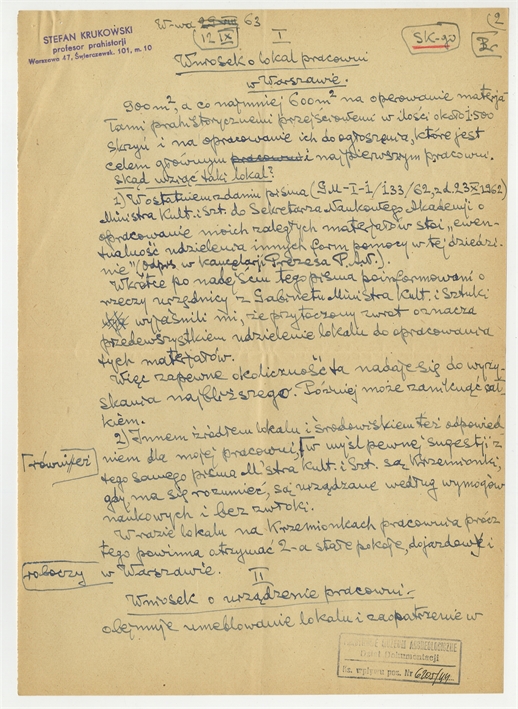 STEFAN KRUKOWSKI
profesor prahistorji
Warszawa 47, Świerczewsk. 101, m. 10
W-wa 63
12 IX
SK-go
2
I
Wniosek o lokal pracowni
w Warszawie.
900m², a co najmniej 600m² na operowanie materja
łami prahistorycznemi przejściowemi w ilości około 1500
skrzyń i na opracowanie ich do ogłoszenia, które jest
celem głównym pracowni i najpierwszym pracowni.
Skąd wziąć taki lokal?
1) W ostatniem zdaniu pisma (GM-I-1/133/62, z d. 23 X 1962)
Ministra Kult. i Szt. do Sekretarza Naukowego Akademji o
opracowanie moich zaległych materjałów stoi „ewen-
tualność udzielenia innych form pomocy w tej dziedzi-
nie” (odpis w kancelarji Prezesa P.A.N.).
Wkrótce po nadejściu tego pisma poinformowani o
rzeczy urzędnicy z Gabinetu Ministra Kult. i Sztuki
wyjaśnili mi, że przytoczony zwrot oznacza
przedewszystkiem udzielenie lokalu do opracowania
tych materjałów.
Więc zapewne okoliczność ta nadaje się do wyzy-
skania najbliższego. Później może zaniknąć cał-
kiem.
2) Innem źródłem lokalu i środowiskiem też odpowied-
niem dla mojej pracowni, w myśl pewnej sugestji z
również
tego samego pisma M'stra Kult. i Szt. są Krzemionki,
gdy, ma się rozumieć, są urządzane według wymogów
naukowych i bez zwłoki.
W razie lokalu na Krzemionkach pracownia prócz
tego powinna otrzymać 2-a stałe pokoje, dojazdowy i
roboczy
w Warszawie.
II
Wniosek o urządzenie pracowni.
obejmuje umeblowanie lokalu i zaopatrzenie w
PAŃSTWOWE MUZEUM ARCHEOLOGICZNE
Dział Dokumentacji
Ks. wpływu poz. Nr 6205/44